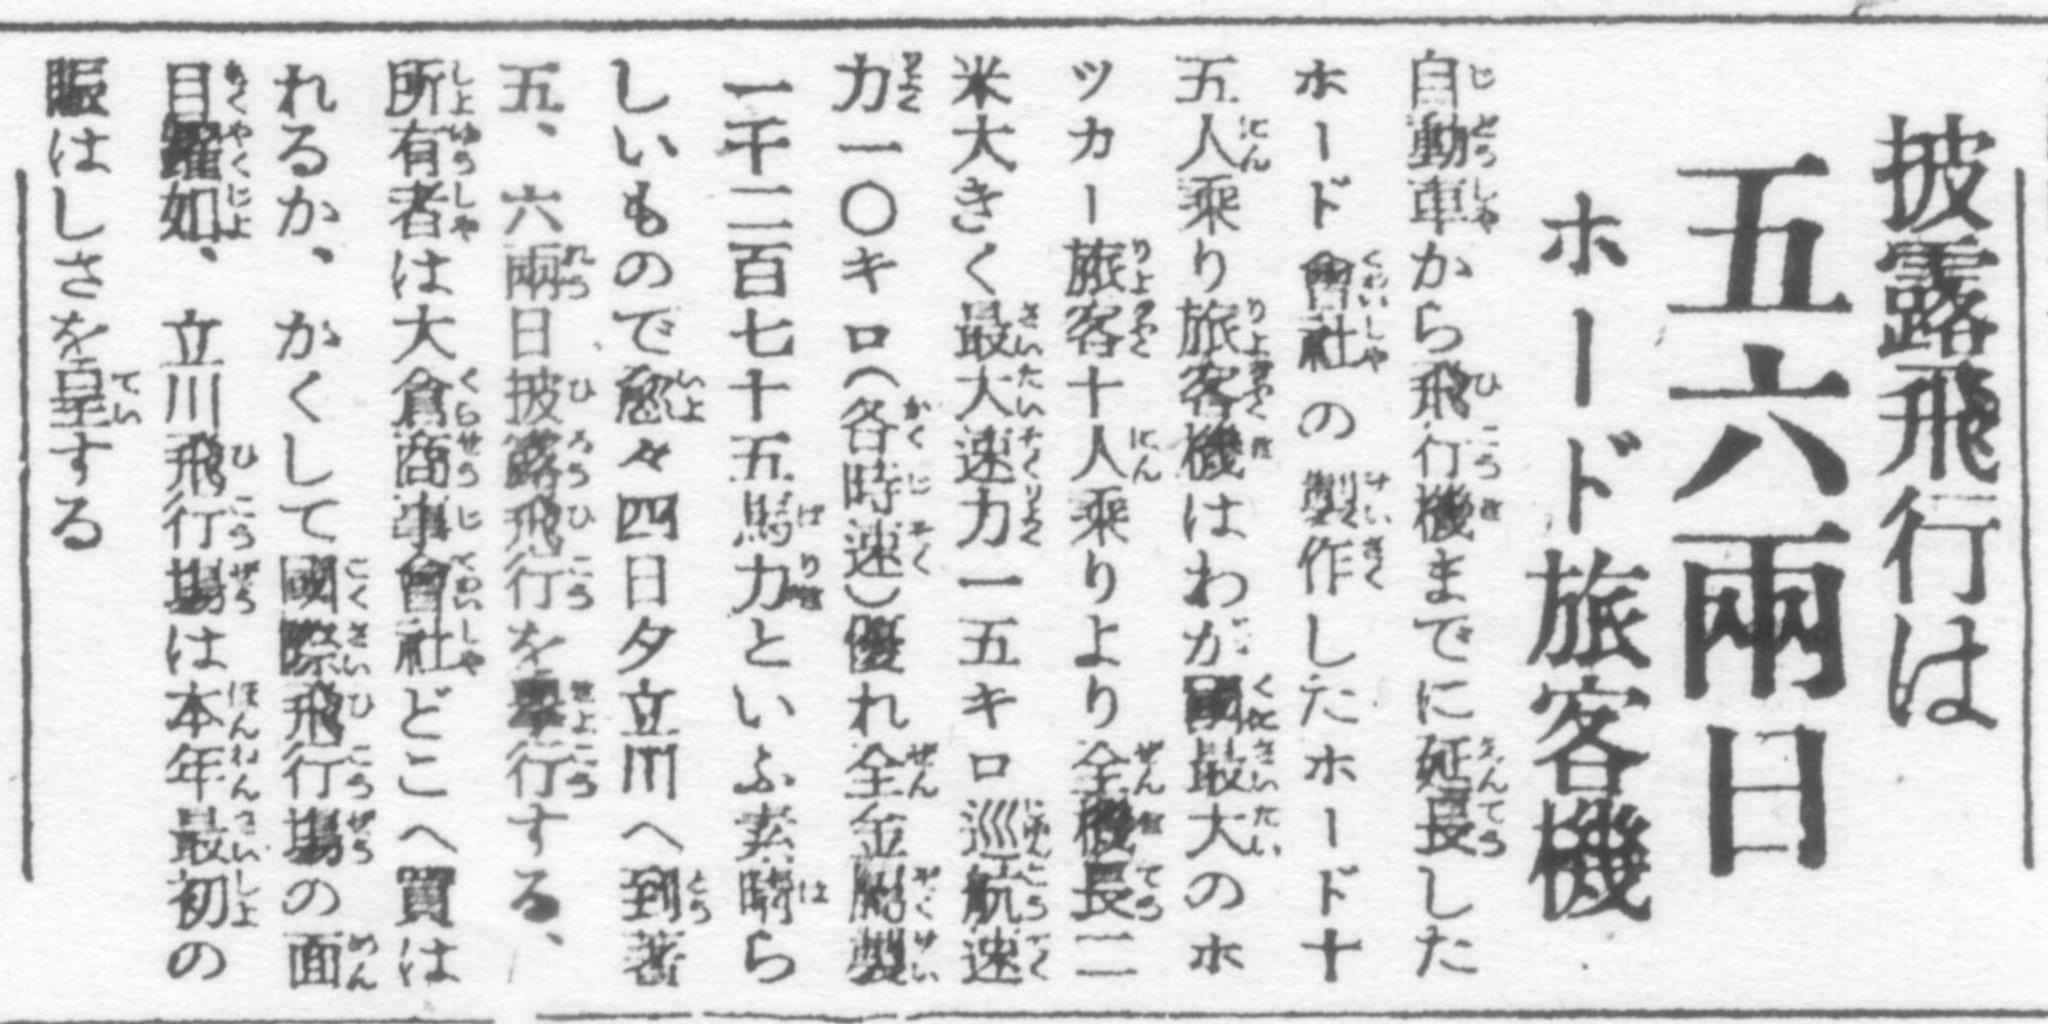 披露飛行は
五六兩日
ホード旅客機
自動車から飛行機までに延長した
ホード會社の製作したホード十
五人乘り旅客機はわが國最大のホ
ッカー旅客十人乘りより全機長二
米大きく最大速力一五キロ巡航速
力一〇キロ（各時速）優れ全金屬製
一千二百七十五馬力といふ素晴ら
しいもので愈々四日夕立川へ到著
五、六兩日披露飛行を擧行する、
所有者は大倉商事會社どこへ買は
れるか、かくして國際飛行場の面
目躍如、立川飛行場は本年最初の
賑はしさを呈する